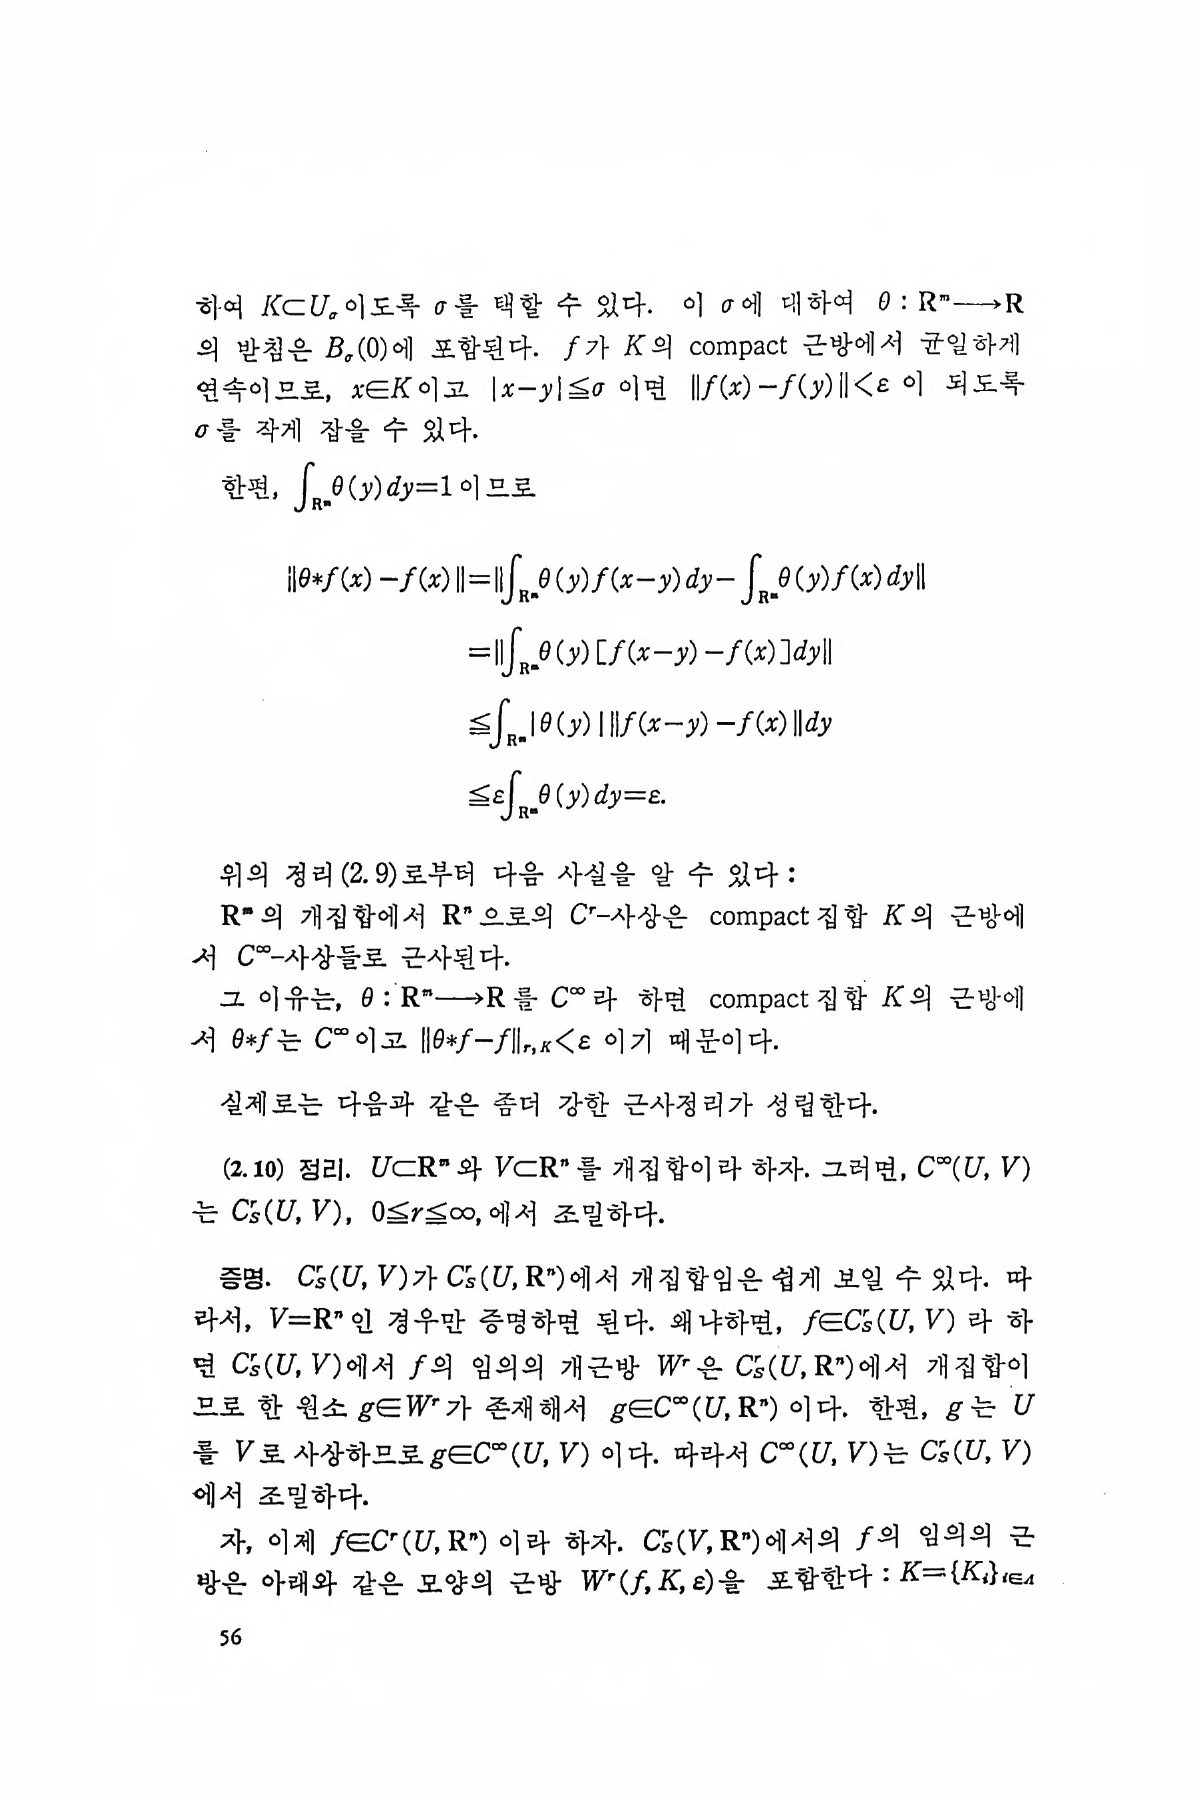 하여 K⊂U_σ이도록 σ를 택할 수 있다. 이 σ에 대하여 θ : R^m⟶R
의 받침은 B_σ(0)에 포함된다. f가 K의 compact 근방에서 균일하게
연속이므로, x∈K이고 |x−y|≦σ 이면 ‖f(x)−f(y)‖<ε 이 되도록
σ를 작게 잡을 수 있다.
한편, ∫_{R^m}θ(y)dy=1이므로
‖θ*f(x)−f(x)‖=‖∫_{R^m}θ(y)f(x−y)dy−∫_{R^m}θ(y)f(x)dy‖
=‖∫_{R^m}θ(y)[f(x−y)−f(x)]dy‖
≦∫_{R^m}|θ(y)|‖f(x−y)−f(x)‖dy
≦ε∫_{R^m}θ(y)dy=ε.
위의 정리(2.9)로부터 다음 사실을 알 수 있다 :
R^m의 개집합에서 R^n으로의 C^r-사상은 compact집합 K의 근방에
서 C^∞-사상들로 근사된다.
그 이유는, θ : R^m⟶R를 C^∞라 하면 compact집합 K의 근방에
서 θ*f는 C^∞이고 ‖θ*f−f‖_{r,K}<ε 이기 때문이다.
실제로는 다음과 같은 좀더 강한 근사정리가 성립한다.
(2.10) 정리. U⊂R^m와 V⊂R^n를 개집합이라 하자. 그러면, C^∞(U, V)
는 C^r_S(U, V), 0≦r≦∞, 에서 조밀하다.
증명. C^r_S(U, V)가 C^r_S(U, R^n)에서 개집합임은 쉽게 보일 수 있다. 따
라서, V=R^n인 경우만 증명하면 된다. 왜냐하면, f∈C^r_S(U, V) 라 하
면 C^r_S(U, V)에서 f의 임의의 개근방 W^r은 C^r_S(U, R^n)에서 개집합이
므로 한 원소 g∈W^r가 존재해서 g∈C^∞(U, R^n) 이다. 한편, g는 U
를 V로 사상하므로 g∈C^∞(U, V) 이다. 따라서 C^∞(U, V)는 C^r_S(U, V)
에서 조밀하다.
자, 이제 f∈C^r(U, R^n) 이라 하자. C^r_S(V, R^n)에서의 f의 임의의 근
방은 아래와 같은 모양의 근방 W^r(f, K, ε)을 포함한다 : K={K_i}_{i∈Λ}
56